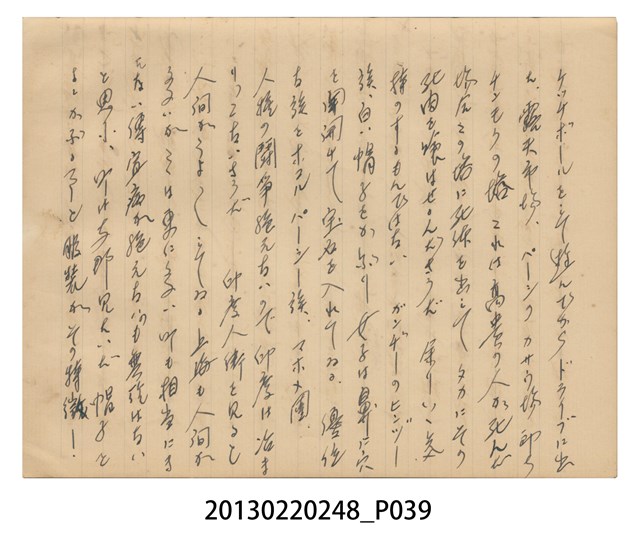 ケッチボールをして遊んでからドライブに出
た、露天市場、パーシックカサウ場、即ち
チンモクの塔 これは高貴の人が死んだ
場合この塔に死体を出して タカにその
死肉を喰はせるんださうだ 余りいゝ気
持のするもんではない ガンヂーのヒンヅー
族、白い帽子をかぶり 女子は鼻に穴
を開けて宝石を入れてゐる
古族とホクル パーシー族、マホメ團、
人種の闘争絶えないので印度は治ま
りつこないさうだ 印度人街を見ると
人間がうようよしてゐる 上海も人間が
多いがこゝは更に多い 町も相当にき
たない 傳官病が絶えないのも無理はない
と思ふ、町は大部見たいだ 帽子を
まとかぶるのと服装がその特徴!
20130220248_P039